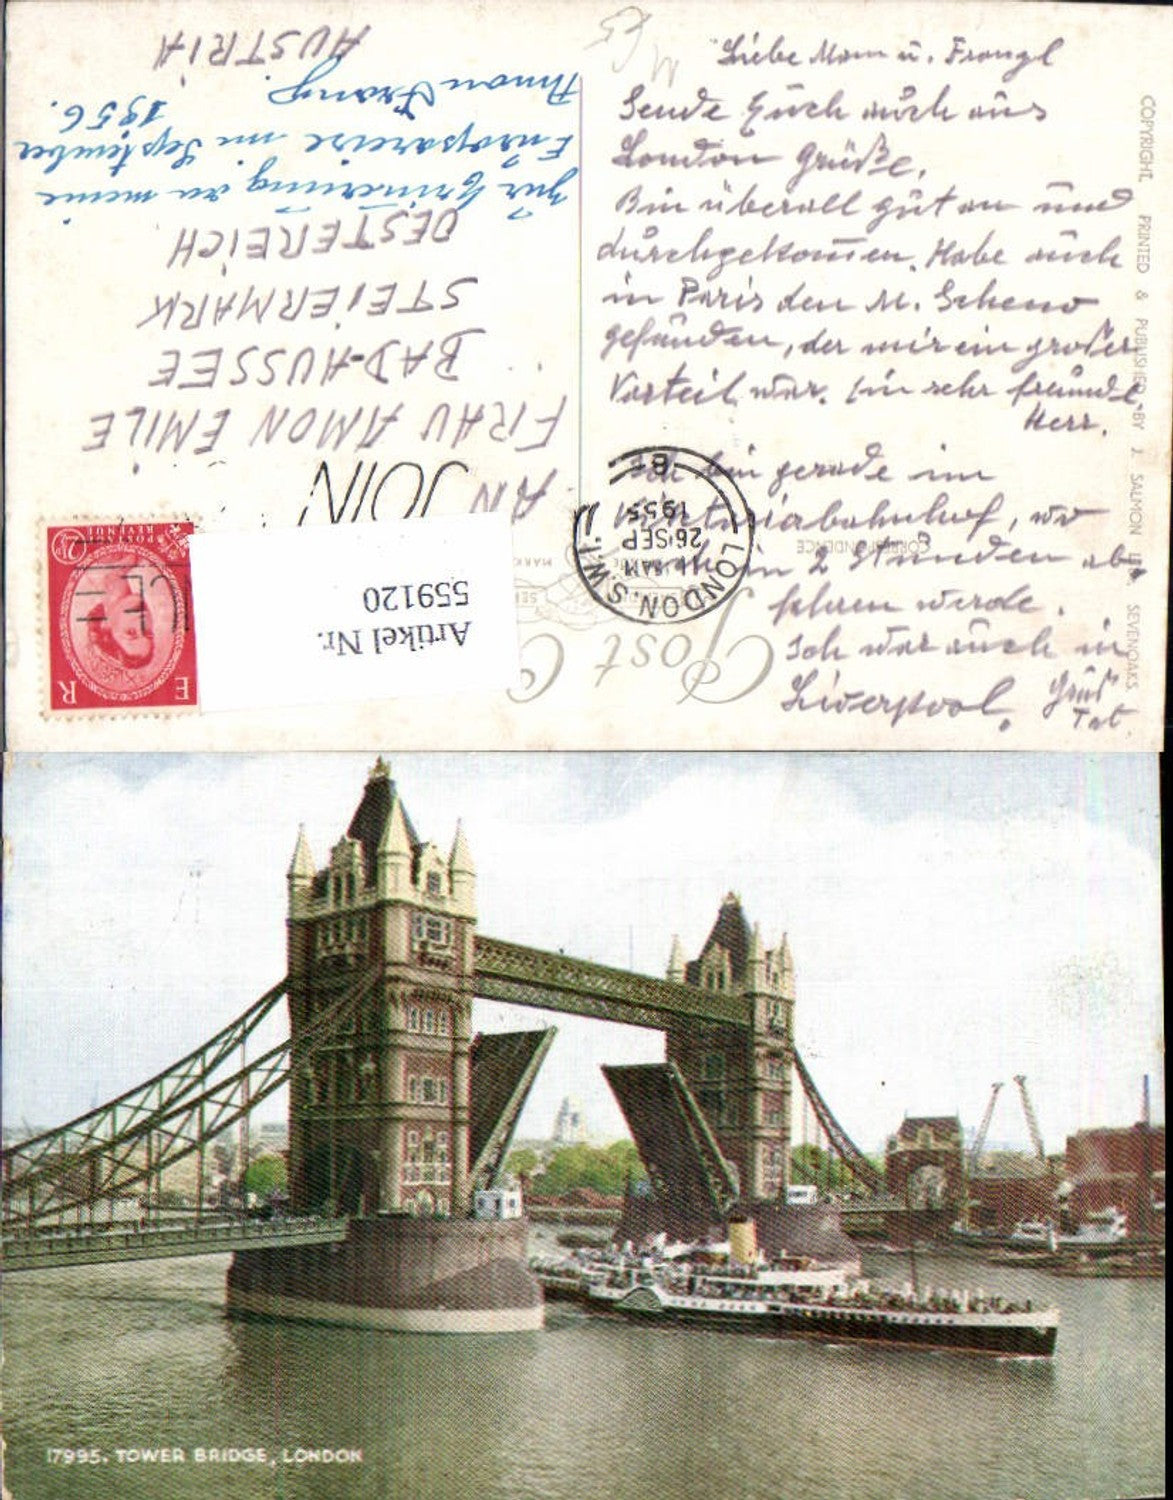 Liebe Mam u. Franzl
Sende Euch auch aus
London Grüße.
Bin überall gut an und
durchgekommen. Habe auch
in Paris den M. Scheno
gefunden, der mir ein großer
Vorteil war. Ein sehr freundl.
Herr.
Ich bin gerade im
Viktoriabahnhof, wo
ich in 2 Stunden ab
fahren werde.
Ich war auch in
Liverpool. Gruß
Tat.
COPYRIGHT. PRINTED & PUBLISHED BY J. SALMON LTD. SEVENOAKS.
Post C
CORRESPONDENCE
LONDON.S.W.1
11 AM
26 SEP
1955
B
JOIN
E R
POSTAGE REVENUE
2½D
Artikel Nr.
559120
AN
FRAU AMON EMILE
BAD-AUSSEE
STEIERMARK
OESTEREICH
Zur Erinnerung an meine
Europareise im September
1956.
Amon Franz
AUSTRIA
17995. TOWER BRIDGE, LONDON